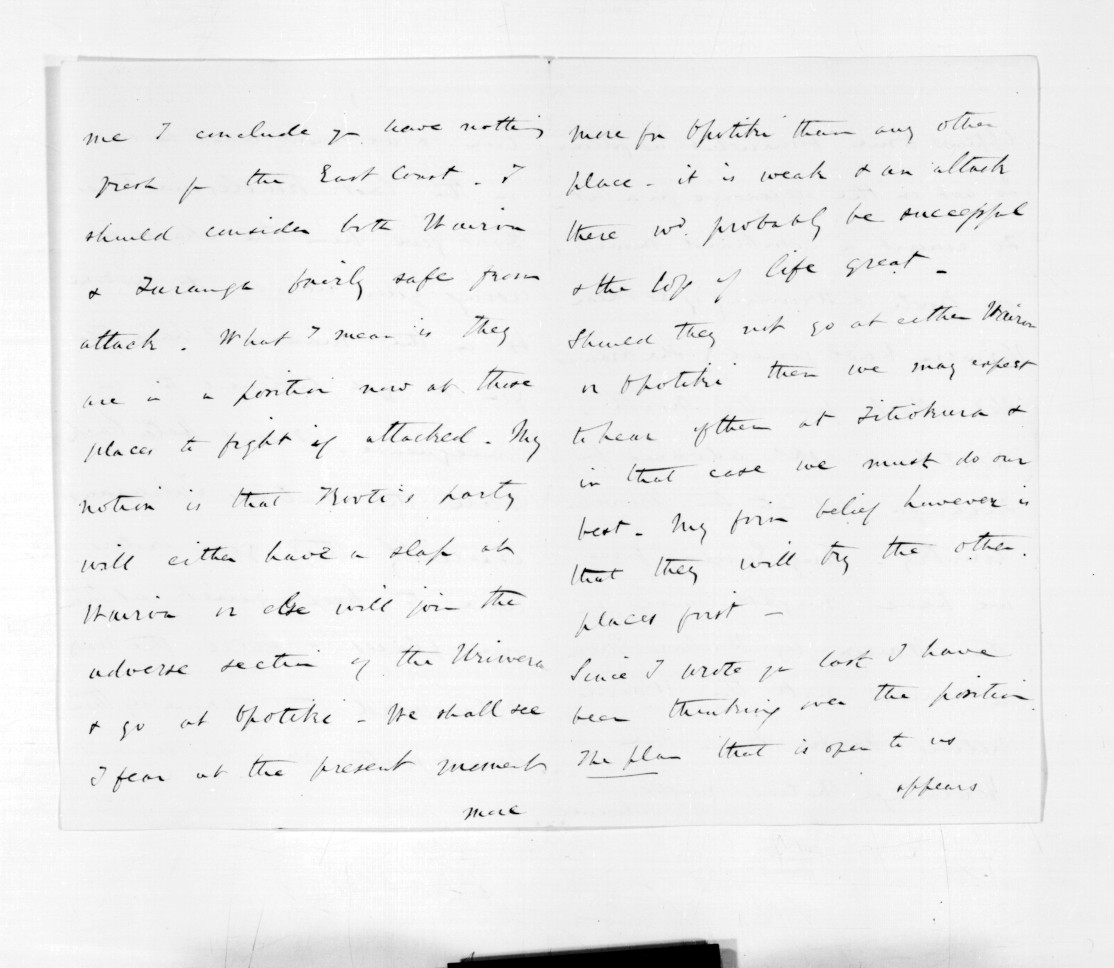 me I conclude yr have nothing
fresh fr the East Coast. I
should consider both Wairoa
& Turanga fairly safe from
attack. What I mean is they
are in a position now at those
places to fight if attacked. My
notion is that Kooti's party
will either have a slap at
Wairoa or else will join the
adverse section of the Uriwera
& go at Opotiki - We shall see
I fear at the present moment
more
more for Opotiki than any other
place - it is weak & an attack
there wd. probably be successful
& the loss of life great -
Should they not go at either Wairoa
or Opotiki then we may expect
to hear of them at Titiokura &
in that case we must do our
best - My firm belief however is
that they will try the other
places first -
Since I wrote yr last I have
been thinking over the position.
The plan that is open to us
appears